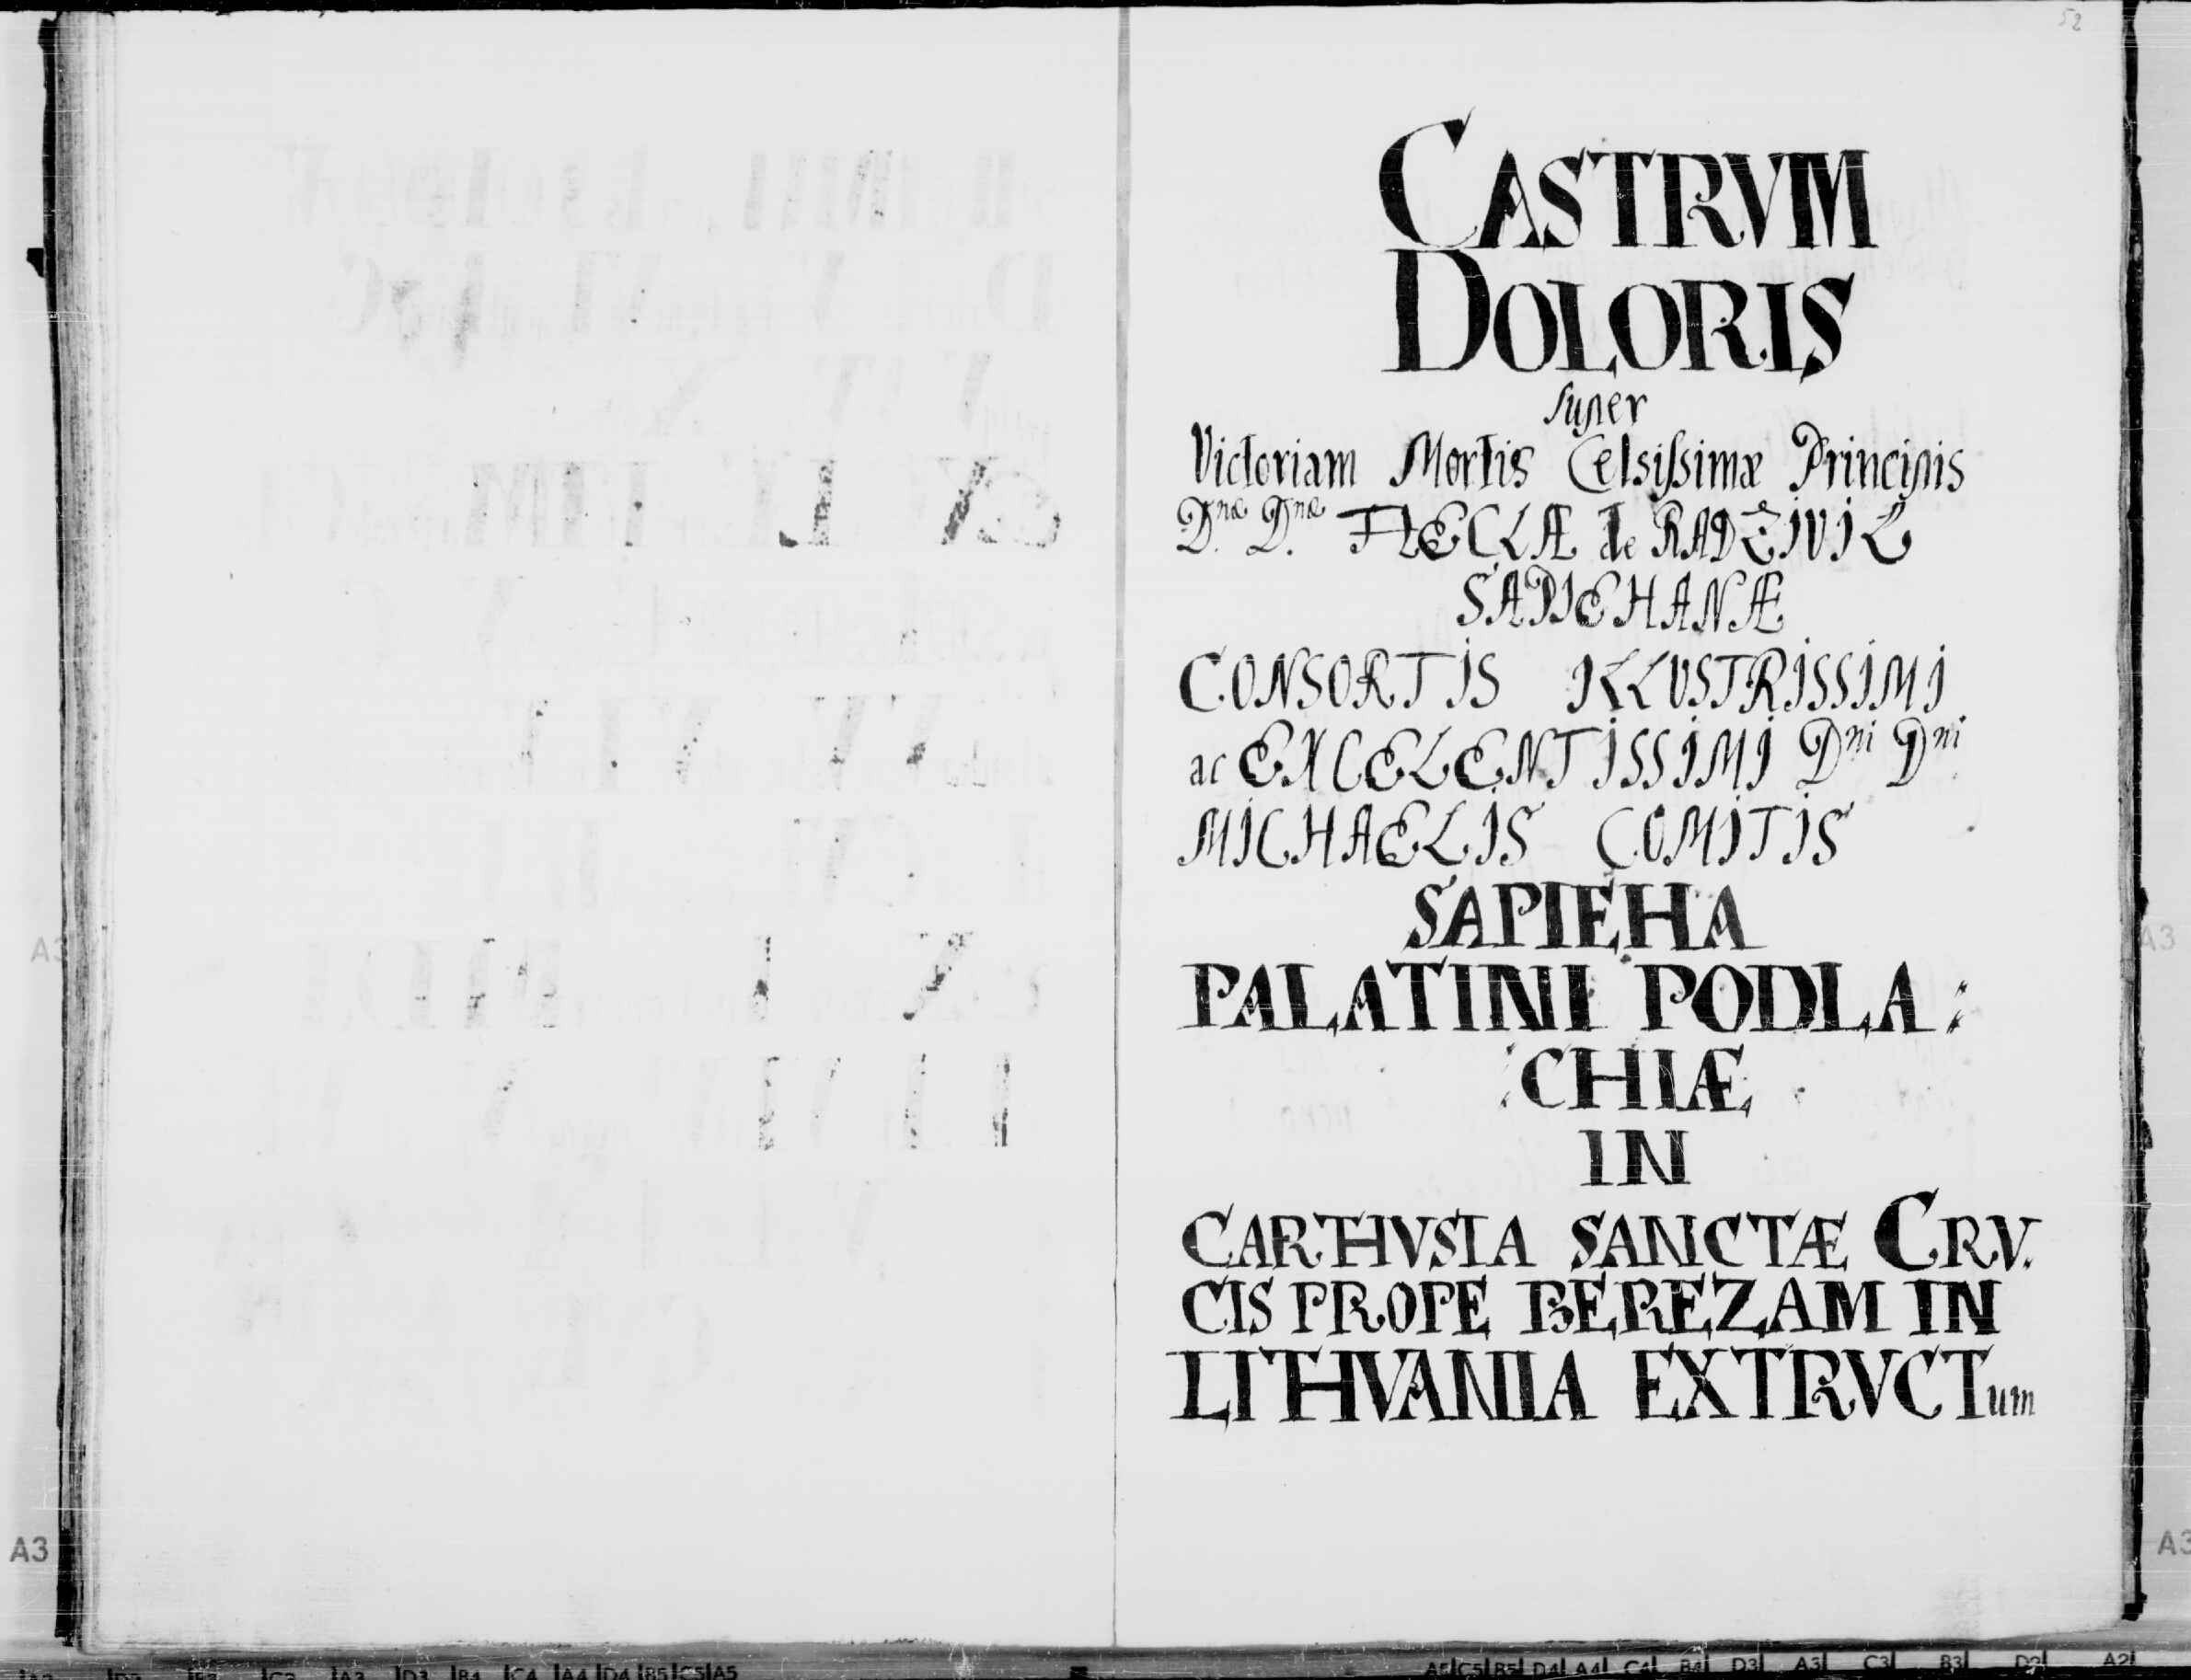 52
CASTRVM
DOLORIS
super
Victoriam Mortis Celsissimæ Principis
D.næ D.næ THECLÆ de RADZIVIŁ
SAPIEHANÆ
CONSORTIS ILLUSTRISSIMI
ac EXCELENTISSIMI Dni Dni
MICHAELIS COMITIS
SAPIEHA
PALATINI PODLA:
:CHIÆ
IN
CARTHVSIA SANCTÆ CRV.
CIS PROPE BEREZAM IN
LITHVANIA EXTRVCTum
A3
A3
A3
A3
A3 D3 B4 C4 A4 D4 B5 C5 A5
A5 C5 B5 D4 A4 C4 B4 D3 A3 C3 B3 D2 A2